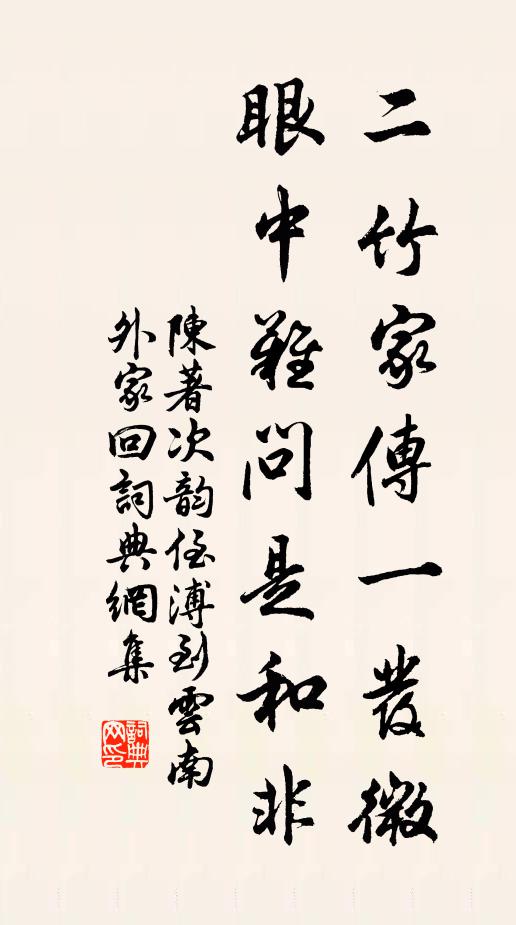 二竹家傳一發微
眼中難問是和非
陳著次韵侄溥到雲南
外家回詞典網集
詞典